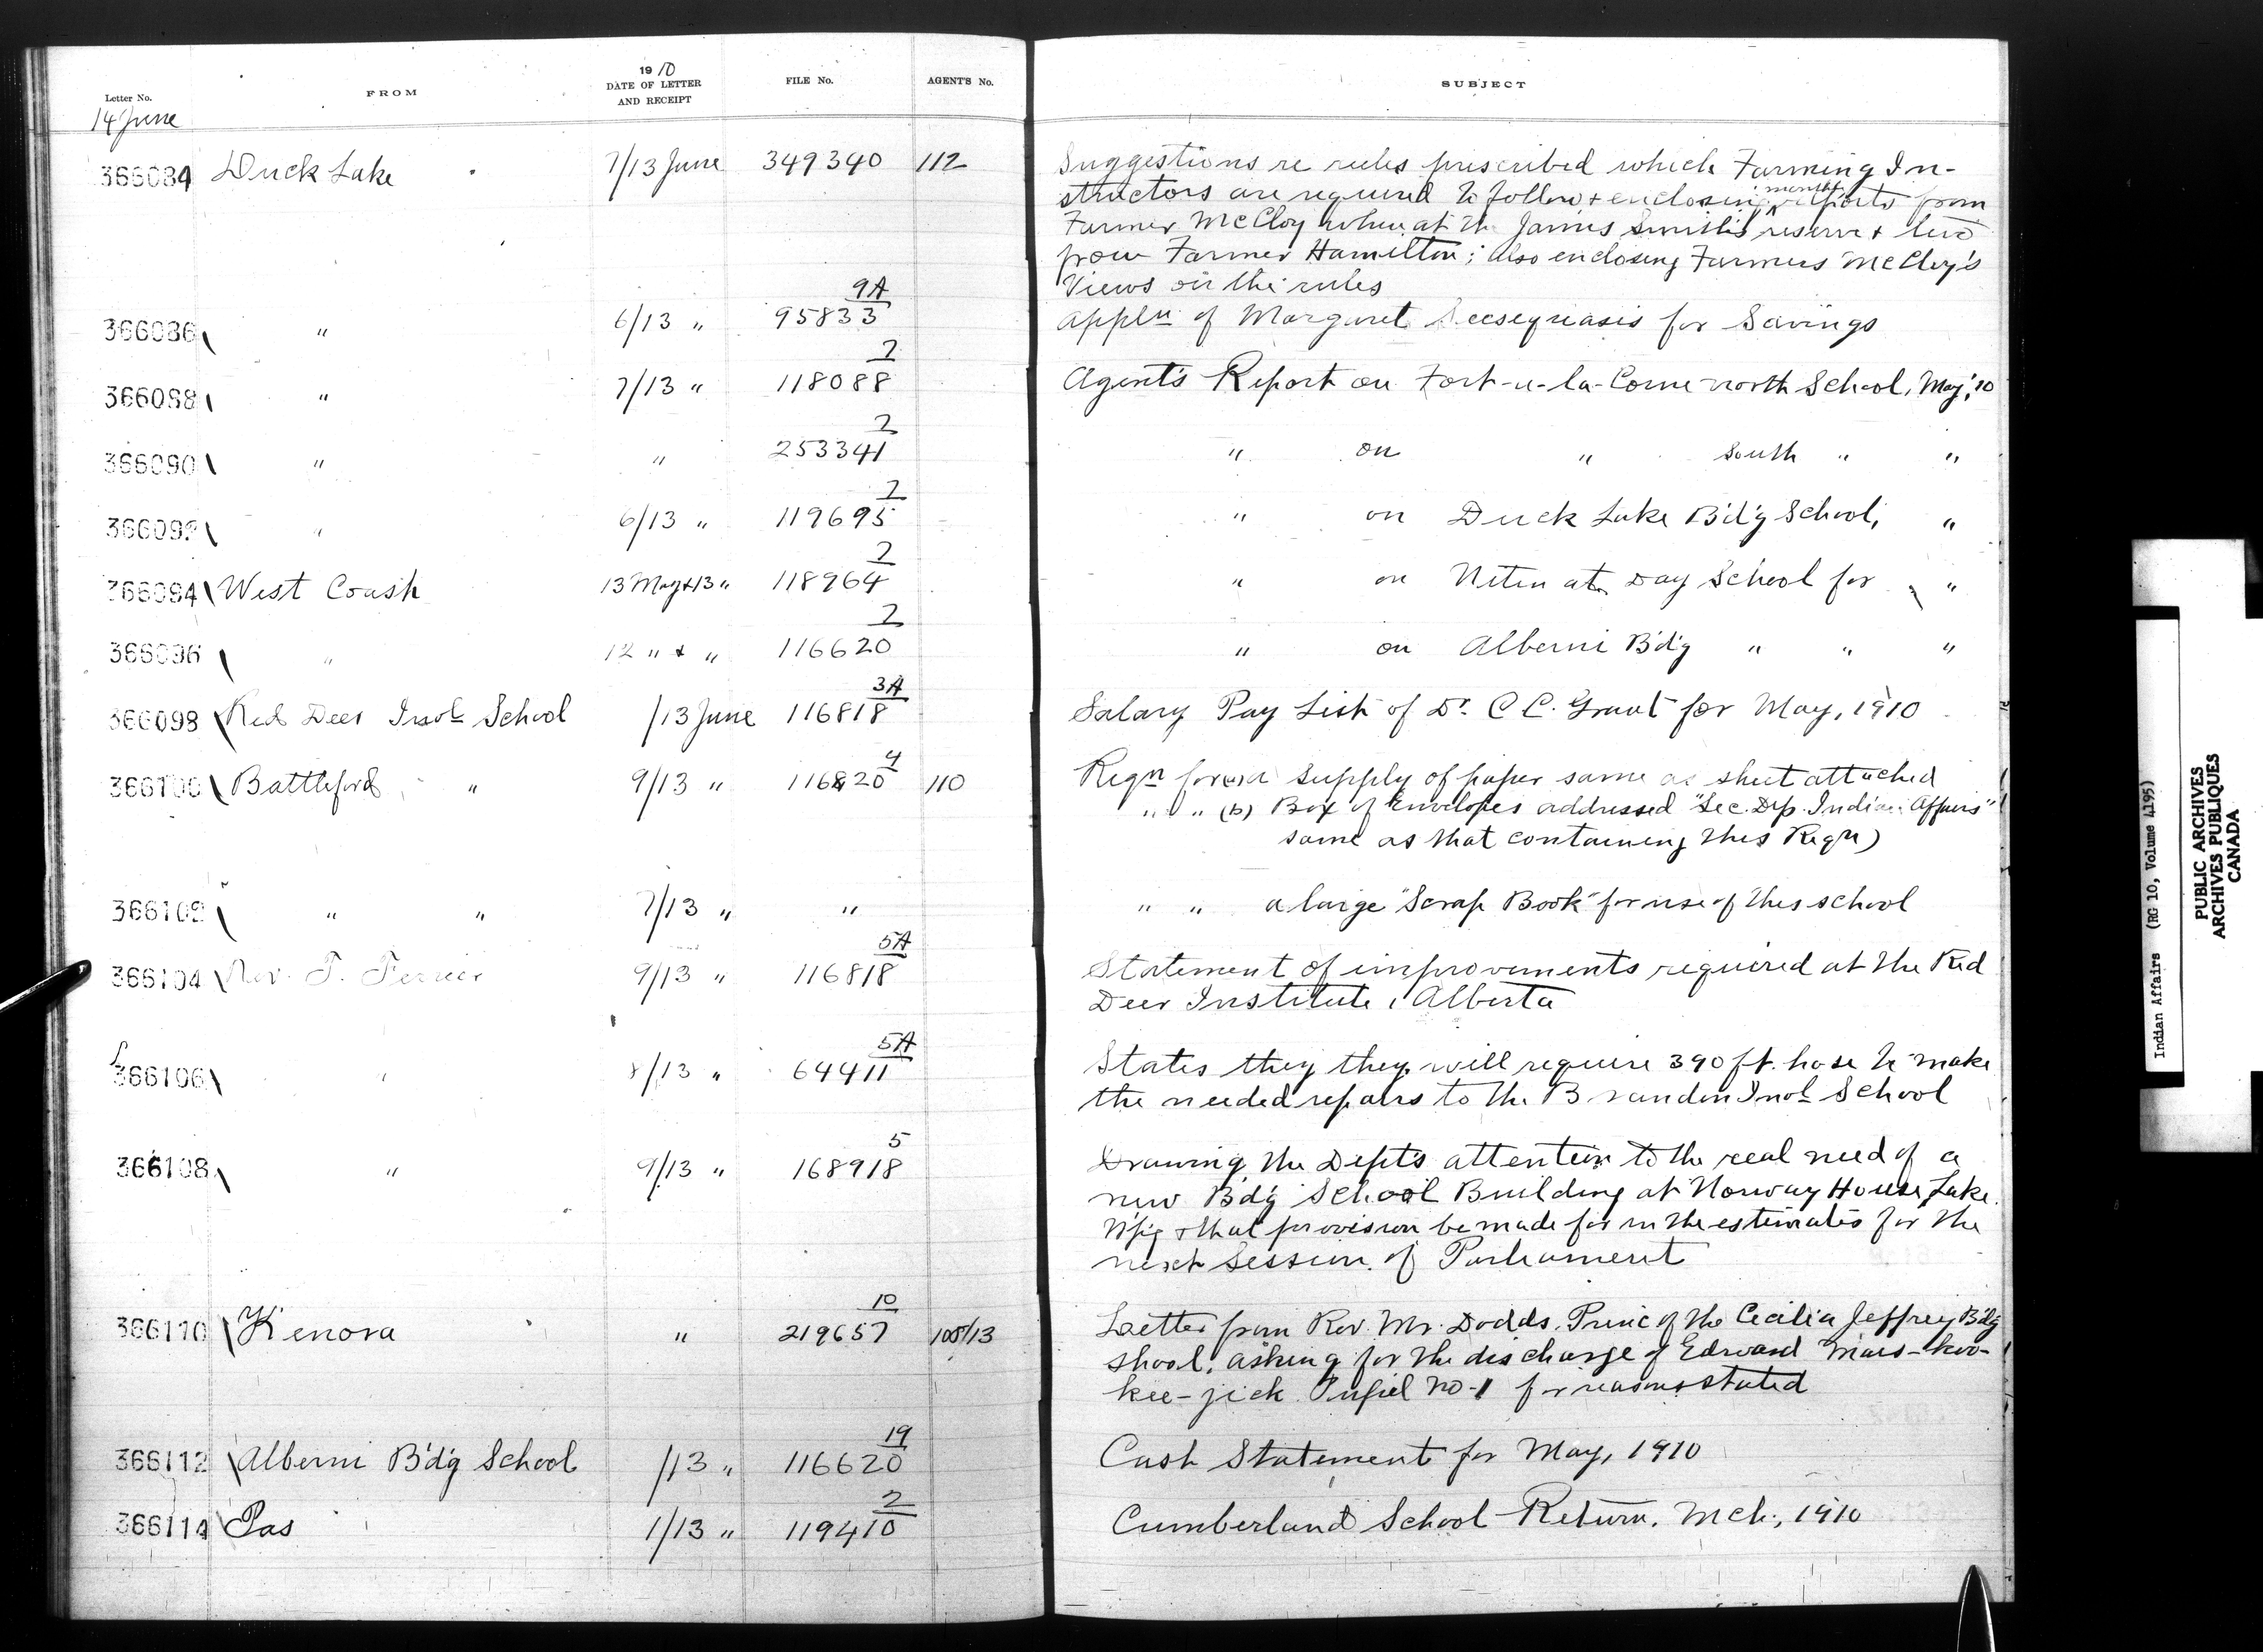 Letter No.
FROM
1910
DATE OF LETTER
AND RECEIPT
FILE No.
AGENT'S No.
SUBJECT
14 June
366084 Duck Lake 7/13 June 349340 112 Suggestions re rules prescribed which Farming In-
structors are required to follow & enclosing month reports from
Farmer McCloy when at the James Smith's reserve & two
from Farmer Hamilton; also enclosing Farmers McCloy's
views on the rules
366086 " 6/13 " 95833 9A Appln of Margaret for Savings
366088 " 7/13 " 118088 2 Agent's Report on Fort-a-la-Corne north School, May, '10
366090 " " 253341 2 " on " South " "
366092 " 6/13 " 119695 2 " on Duck Lake B'd'g School, "
366094 West Coast 13 May & 13 " 118964 2 " on Nitinat Day School for "
366096 " 12 " & " 116620 2 " on Alberni B'd'g " " "
366098 Red Deer Indl School /13 June 116818 3A Salary Pay List of Dr. C C. Grant for May, 1910
366100 Battleford " 9/13 " 116820 4 110 Reqn for (a) supply of paper same as sheet attached
" " (b) Box of Envelopes addressed "Sec. Dep. Indian Affairs"
same as that containing this Reqn)
366102 " " 7/13 " " " " a large "Scrap Book" for use of this school
366104 Rev. T. Ferrier 9/13 " 116818 5A Statement of improvements required at the Red
Deer Institute, Alberta
366106 " 8/13 " 64411 5A States they they will require 390 ft. hose to make
the needed repairs to the Brandon Indl School
366108 " 9/13 " 168918 5 Drawing the Dept's attention to the real need of a
new B'd'g School Building at Norway House, Lake
W'p'g & that provision be made for in the estimates for the
next Session of Parliament
366110 Kenora " 219657 10 108/13 Letter from Rev. Mr. Dodds, Princ of the Cecilia Jeffrey B'd'g
Shool, asking for the discharge of Edward
kee-jick Pupil No-1 for reasons stated
366112 Alberni B'd'g School /13 " 116620 19 Cash Statement for May, 1910
366114 Pas 1/13 " 119410 2 Cumberland School Return, Mch., 1910
Indian Affairs (RG 10, Volume 4195)
PUBLIC ARCHIVES
ARCHIVES PUBLIQUES
CANADA